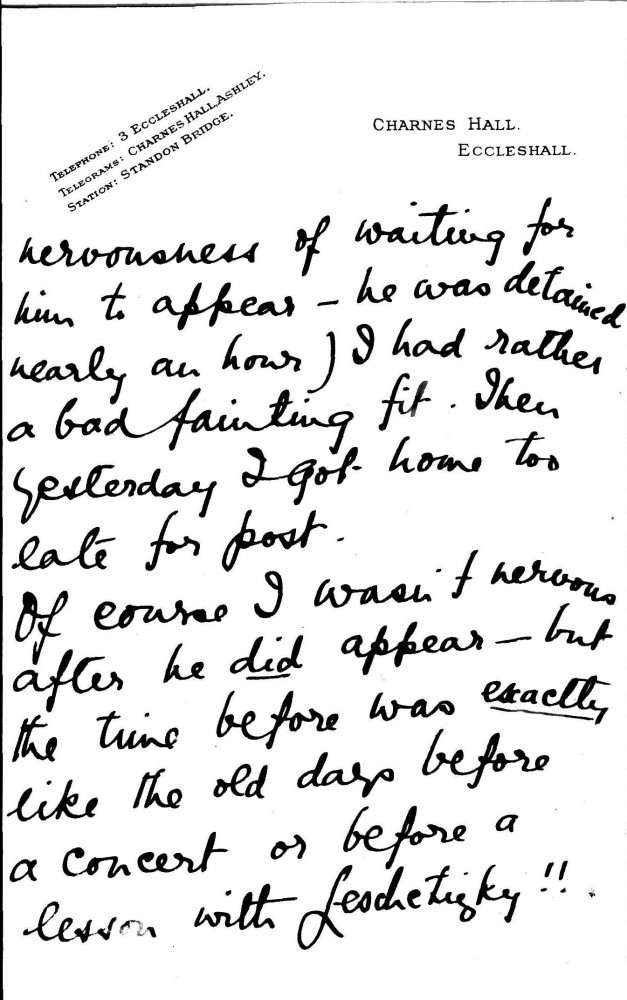 TELEPHONE: 3 ECCLESHALL.
TELEGRAMS: CHARNES HALL, ASHLEY.
STATION: STANDON BRIDGE.
CHARNES HALL.
ECCLESHALL.
nervousness of waiting for
him to appear – he was detained
nearly an hour) I had rather
a bad fainting fit. Then
yesterday I got home too
late for post.
Of course I wasn't nervous
after he did appear – but
the time before was exactly
like the old days before
a concert or before a
lesson with Leschetizky!!.